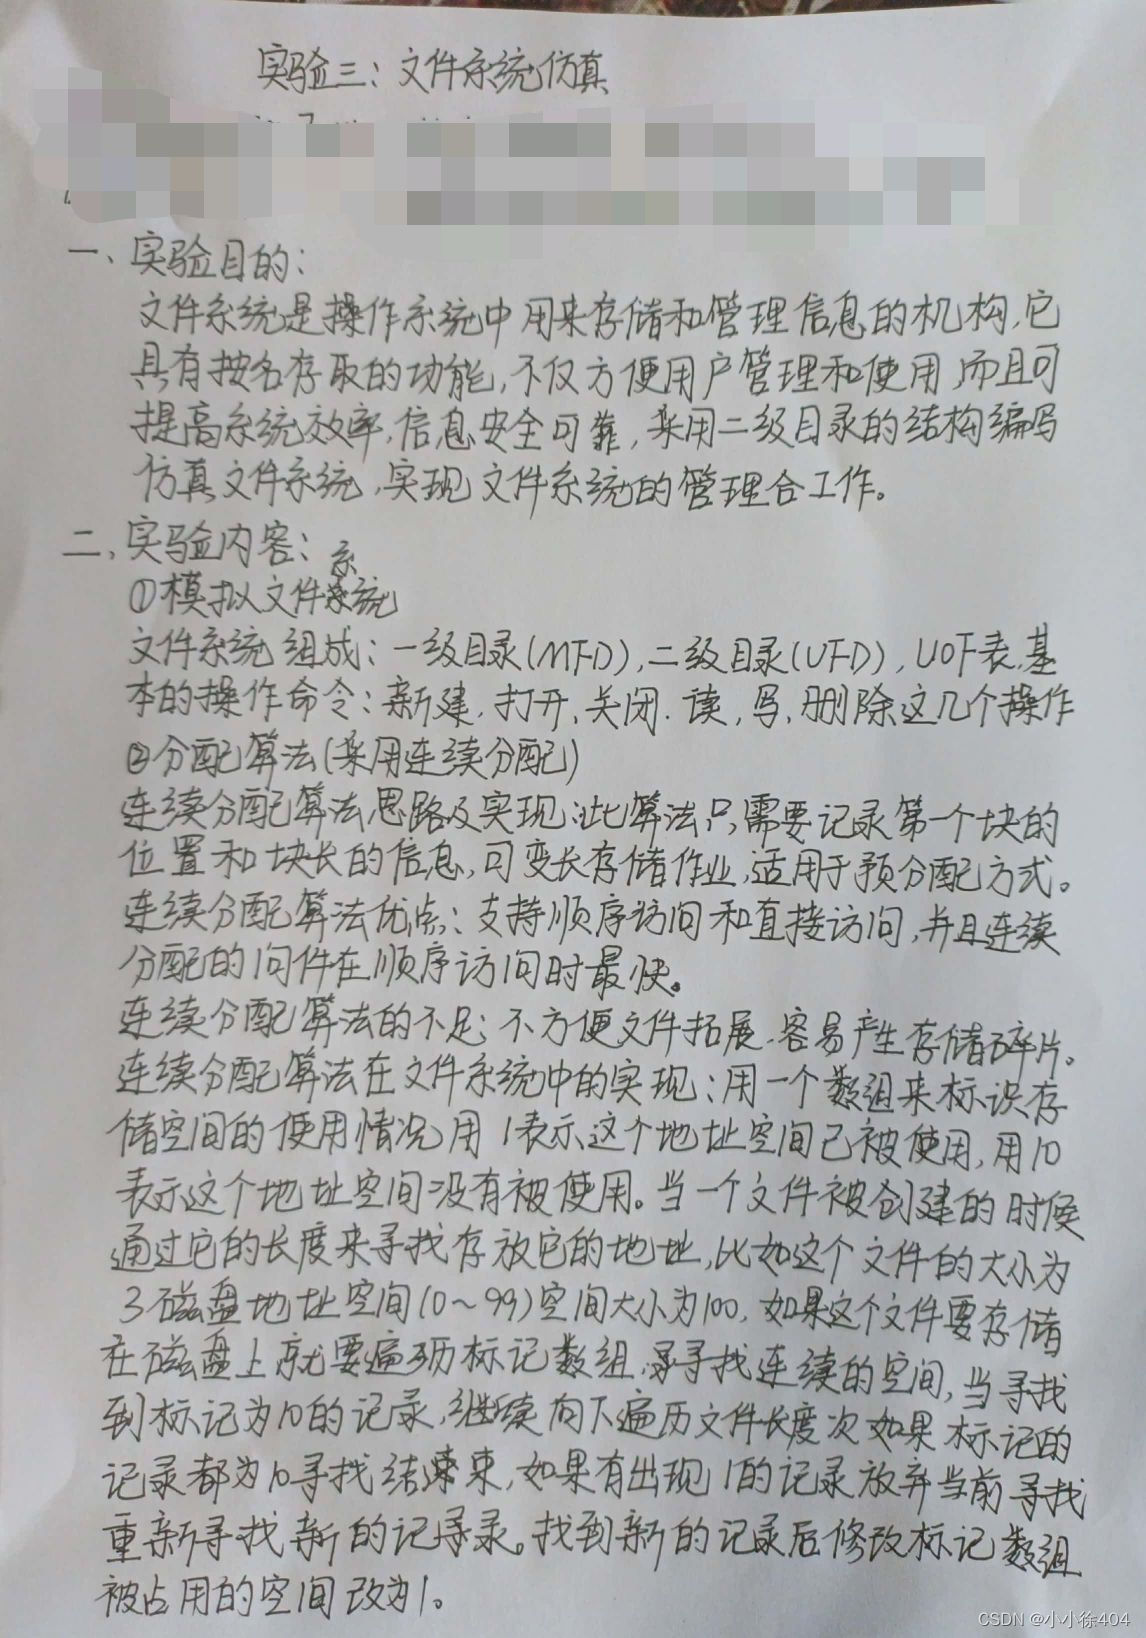 实验三：文件系统仿真
一、实验目的：
文件系统是操作系统中用来存储和管理信息的机构，它
具有按名存取的功能，不仅方便用户管理和使用，而且可
提高系统效率，信息安全可靠，采用二级目录的结构编写
仿真文件系统，实现文件系统的管理合工作。
二、实验内容：
①模拟文件系统
文件系统组成：一级目录(MFD)，二级目录(UFD)，UOF表，基
本的操作命令：新建、打开、关闭、读，写、删除这几个操作
②分配算法(采用连续分配)
连续分配算法思路及实现：此算法只需要记录第一个块的
位置和块长的信息，可变长存储作业，适用于预分配方式。
连续分配算法优点：支持顺序访问和直接访问，并且连续
分配的问件在顺序访问时最快。
连续分配算法的不足：不方便文件拓展，容易产生存储碎片。
连续分配算法在文件系统中的实现：用一个数组来标识存
储空间的使用情况，用1表示这个地址空间已被使用，用10
表示这个地址空间没有被使用。当一个文件被创建的时候
通过它的长度来寻找存放它的地址，比如这个文件的大小为
3磁盘地址空间(0～99)空间大小为100，如果这个文件要存储
在磁盘上就要遍历标记数组，寻找连续的空间，当寻找
到标记为10的记录，继续向下遍历文件长度次如果标记的
记录都为10寻找结束，如果有出现1的记录放弃当前寻找
重新寻找新的记录。找到新的记录后修改标记数组
被占用的空间改为1。
CSDN @小小徐404